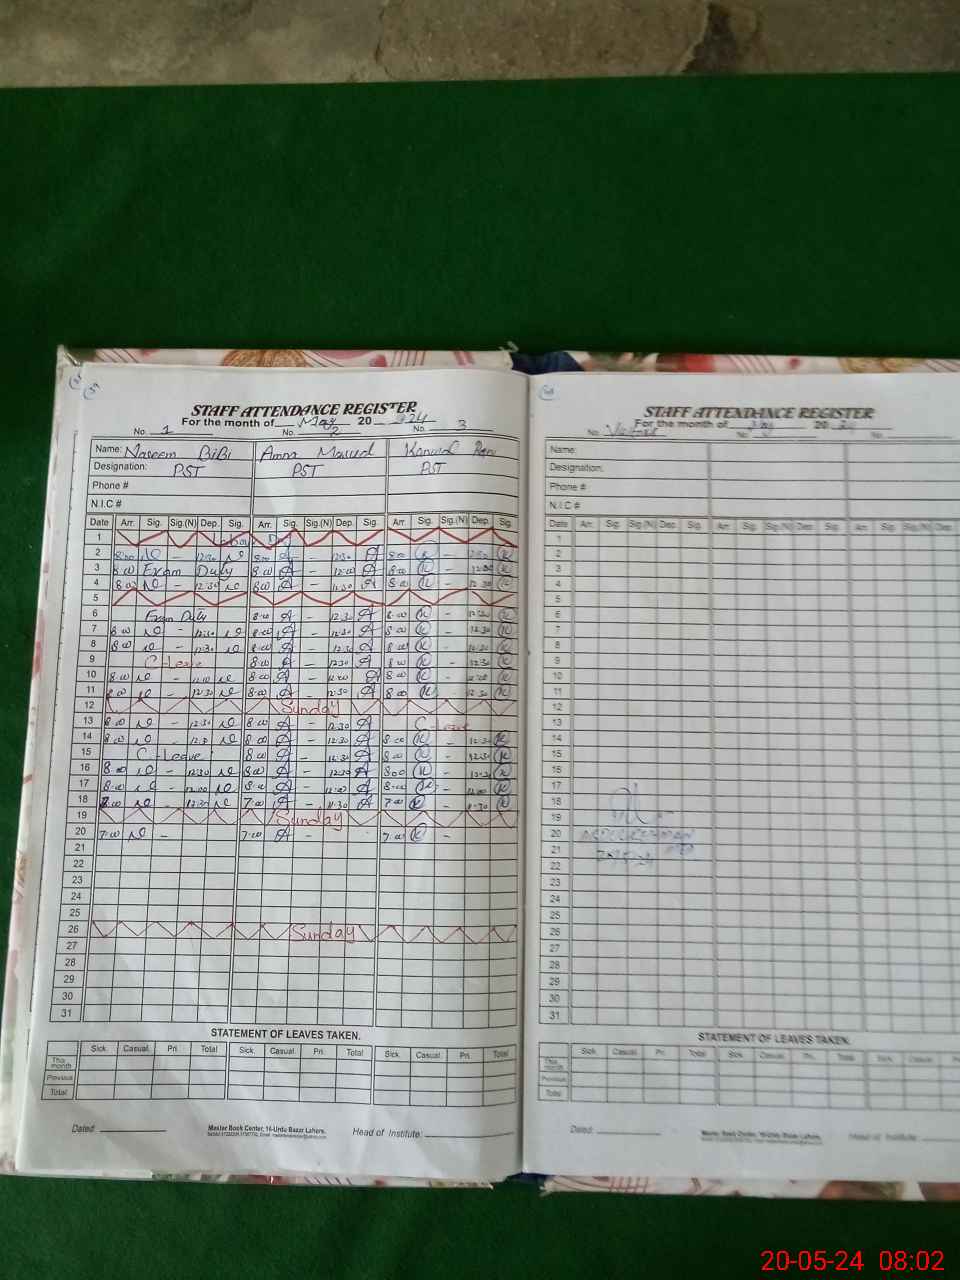 STAFF ATTENDANCE REGISTER
For the month of May 2024
No. 1 No. 2 No. 3
Name: Naseem BiBi Amna Masud Kanwal
Designation: PST PST PST
Phone #
N.I.C #
Date Arr. Sig. Sig.(N) Dep. Sig. Arr. Sig. Sig.(N) Dep. Sig. Arr. Sig. Sig.(N) Dep. Sig.
1 Labour Day
2 8:00 - 12:30 8:00 A - 12:30 A 8:00 K - 12:30 K
3 8:00 Exam Duty 8:00 A - 12:00 A 8:00 K - 12:00 K
4 8:00 - 12:30 8:00 A - 12:30 A 8:00 K - 12:30 K
5
6 Exam Duty 8:00 A - 12:30 A 8:00 K - 12:30 K
7 8:00 - 12:30 8:00 A - 12:30 A 8:00 K - 12:30 K
8 8:00 - 12:30 8:00 A - 12:30 A 8:00 K - 12:30 K
9 C-Leave 8:00 A - 12:30 A 8:00 K - 12:30 K
10 8:00 - 8:00 A - A 8:00 K - K
11 8:00 - 12:30 8:00 A - 12:30 A 8:00 K - 12:30 K
12 Sunday
13 8:00 - 12:30 8:00 A - 12:30 A C-Leave
14 8:00 - 12:30 8:00 A - 12:30 A 8:00 K - 12:30 K
15 C-Leave 8:00 A - 12:30 A 8:00 K - 12:30 K
16 8:00 - 12:30 8:00 A - 12:30 A 8:00 K - 12:30 K
17 8:00 - 12:00 8:00 A - 12:00 A 8:00 K - 12:00 K
18 7:00 - 7:00 A - 11:30 A 7:00 K - 11:30 K
19 Sunday
20 7:00 - 7:00 A - 7:00 K -
21
22
23
24
25
26 Sunday
27
28
29
30
31
STATEMENT OF LEAVES TAKEN.
Sick. Casual. Pri. Total Sick. Casual. Pri. Total Sick. Casual. Pri. Total
This month
Previous
Total
Dated: Master Book Center, 16-Urdu Bazar Lahore. Head of Institute:
STAFF ATTENDANCE REGISTER
For the month of May 20 24
No. No. No.
Name:
Designation:
Phone #
N.I.C #
Date Arr. Sig. Sig.(N) Dep. Sig. Arr. Sig. Sig.(N) Dep. Sig. Arr. Sig. Sig.(N)
1
2
3
4
5
6
7
8
9
10
11
12
13
14
15
16
17
18
19
20
21
22
23
24
25
26
27
28
29
30
31
STATEMENT OF LEAVES TAKEN.
Sick. Casual. Pri. Total Sick. Casual. Pri. Total Sick. Casual. Pri.
This month
Previous
Total
Dated: Master Book Center, 16-Urdu Bazar Lahore. Head of Institute:
20-05-24 08:02